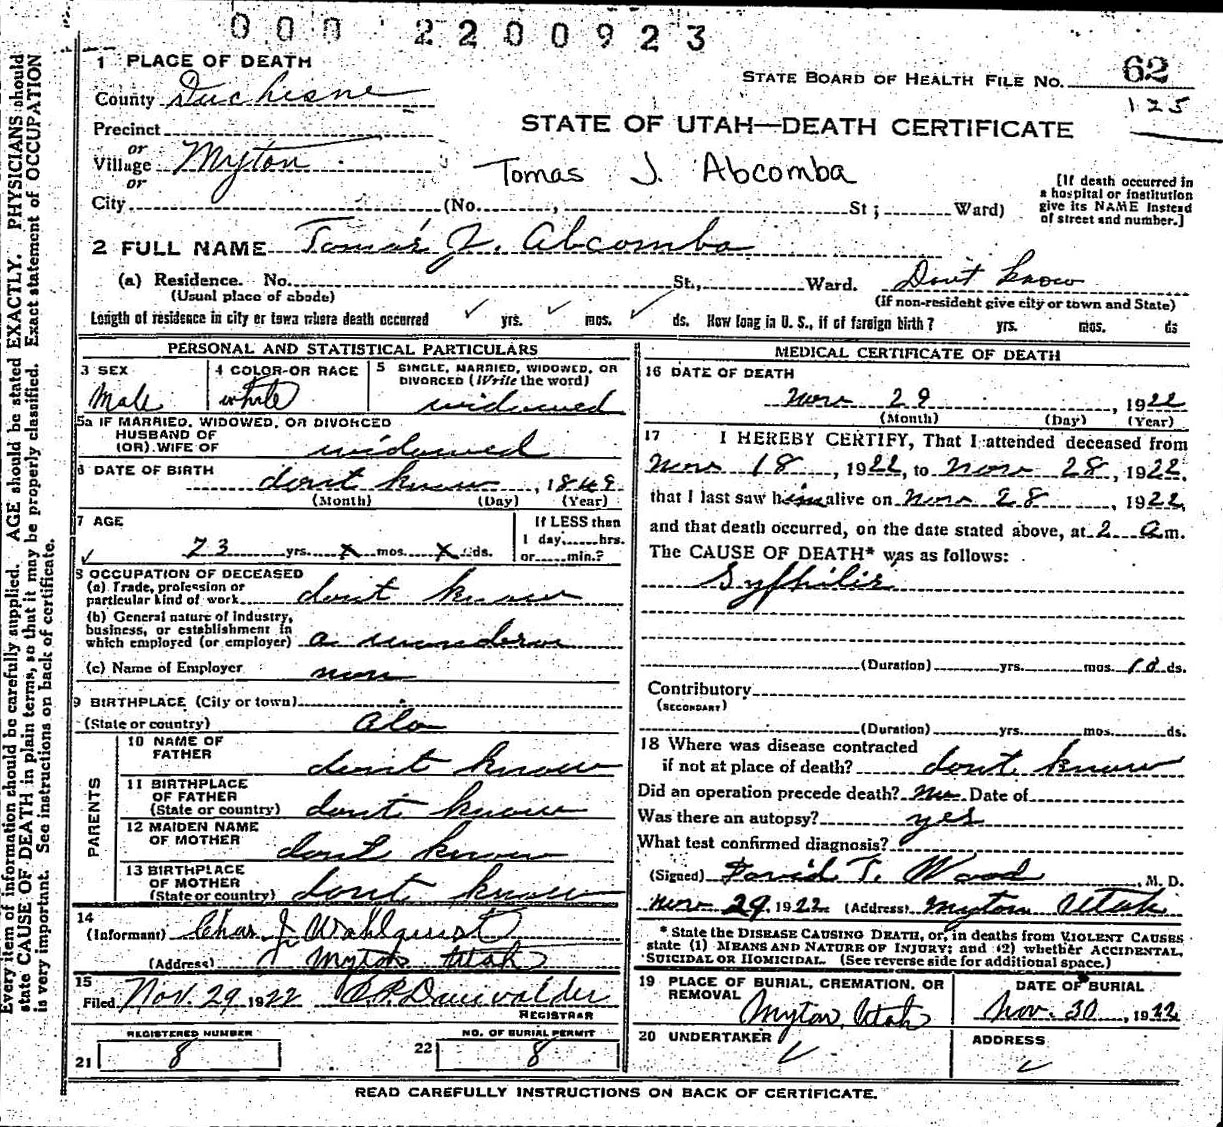 000 2200923
1 PLACE OF DEATH
STATE BOARD OF HEALTH FILE No. 62
125
County Duchesne
STATE OF UTAH—DEATH CERTIFICATE
Precinct
or
Village Myton
or
Tomas J. Abcomba
[If death occurred in a hospital or institution give its NAME instead of street and number.]
City (No. , St; Ward)
2 FULL NAME Tomas J. Abcomba
(a) Residence. No. St., Ward. Don't know
(Usual place of abode) (If non-resident give city or town and State)
Length of residence in city or town where death occurred ✓ yrs. ✓ mos. ✓ ds. How long in U. S., if of foreign birth? yrs. mos. ds
PERSONAL AND STATISTICAL PARTICULARS
3 SEX
Male
4 COLOR OR RACE
white
5 SINGLE, MARRIED, WIDOWED, OR DIVORCED (Write the word)
widowed
5a IF MARRIED, WIDOWED, OR DIVORCED
HUSBAND OF
(OR) WIFE OF widowed
6 DATE OF BIRTH
dont know, 1849
(Month) (Day) (Year)
7 AGE
✓ 73 yrs. x mos. x ds.
If LESS than
1 day, hrs.
or min.?
8 OCCUPATION OF DECEASED
(a) Trade, profession or
particular kind of work dont know
(b) General nature of industry,
business, or establishment in
which employed (or employer) a
(c) Name of Employer non
9 BIRTHPLACE (City or town)
(State or country)
PARENTS
10 NAME OF
FATHER dont know
11 BIRTHPLACE
OF FATHER
(State or country) dont know
12 MAIDEN NAME
OF MOTHER dont know
13 BIRTHPLACE
OF MOTHER
(State or country) dont know
14
(Informant) Chas J Wahlquist
(Address) Myton Utah
15
Filed Nov. 29 1922
REGISTRAR
REGISTERED NUMBER
21 8
NO. OF BURIAL PERMIT
22 8
MEDICAL CERTIFICATE OF DEATH
16 DATE OF DEATH
Nov 29, 1922
(Month) (Day) (Year)
17 I HEREBY CERTIFY, That I attended deceased from
Nov 18, 1922, to Nov 28, 1922.
that I last saw him alive on Nov 28, 1922,
and that death occurred, on the date stated above, at 2 am.
The CAUSE OF DEATH* was as follows:
Syphilis
(Duration) yrs. mos. 10 ds.
Contributory
(SECONDARY)
(Duration) yrs. mos. ds.
18 Where was disease contracted
if not at place of death? dont know
Did an operation precede death? no Date of
Was there an autopsy? yes
What test confirmed diagnosis?
(Signed) David T. Wood, M. D.
Nov 29. 1922 (Address) Myton Utah
* State the DISEASE CAUSING DEATH, or, in deaths from VIOLENT CAUSES
state (1) MEANS AND NATURE OF INJURY; and (2) whether ACCIDENTAL,
SUICIDAL OR HOMICIDAL. (See reverse side for additional space.)
19 PLACE OF BURIAL, CREMATION, OR
REMOVAL
Myton, Utah
DATE OF BURIAL
Nov. 30, 1922
20 UNDERTAKER
✓
ADDRESS
✓
READ CAREFULLY INSTRUCTIONS ON BACK OF CERTIFICATE.
Every item of information should be carefully supplied. AGE should be stated EXACTLY. PHYSICIANS should
state CAUSE OF DEATH in plain terms, so that it may be properly classified. Exact statement of OCCUPATION
is very important. See instructions on back of certificate.